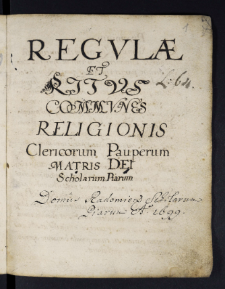 REGVLÆ
ET
RITVS
L:64.
COMMVNES
RELIGIONIS
Clericorum Pauperum
MATRIS DEI
Scholarum Piarum
Domus Radomien: Scholarum
Piarum A° 1699.